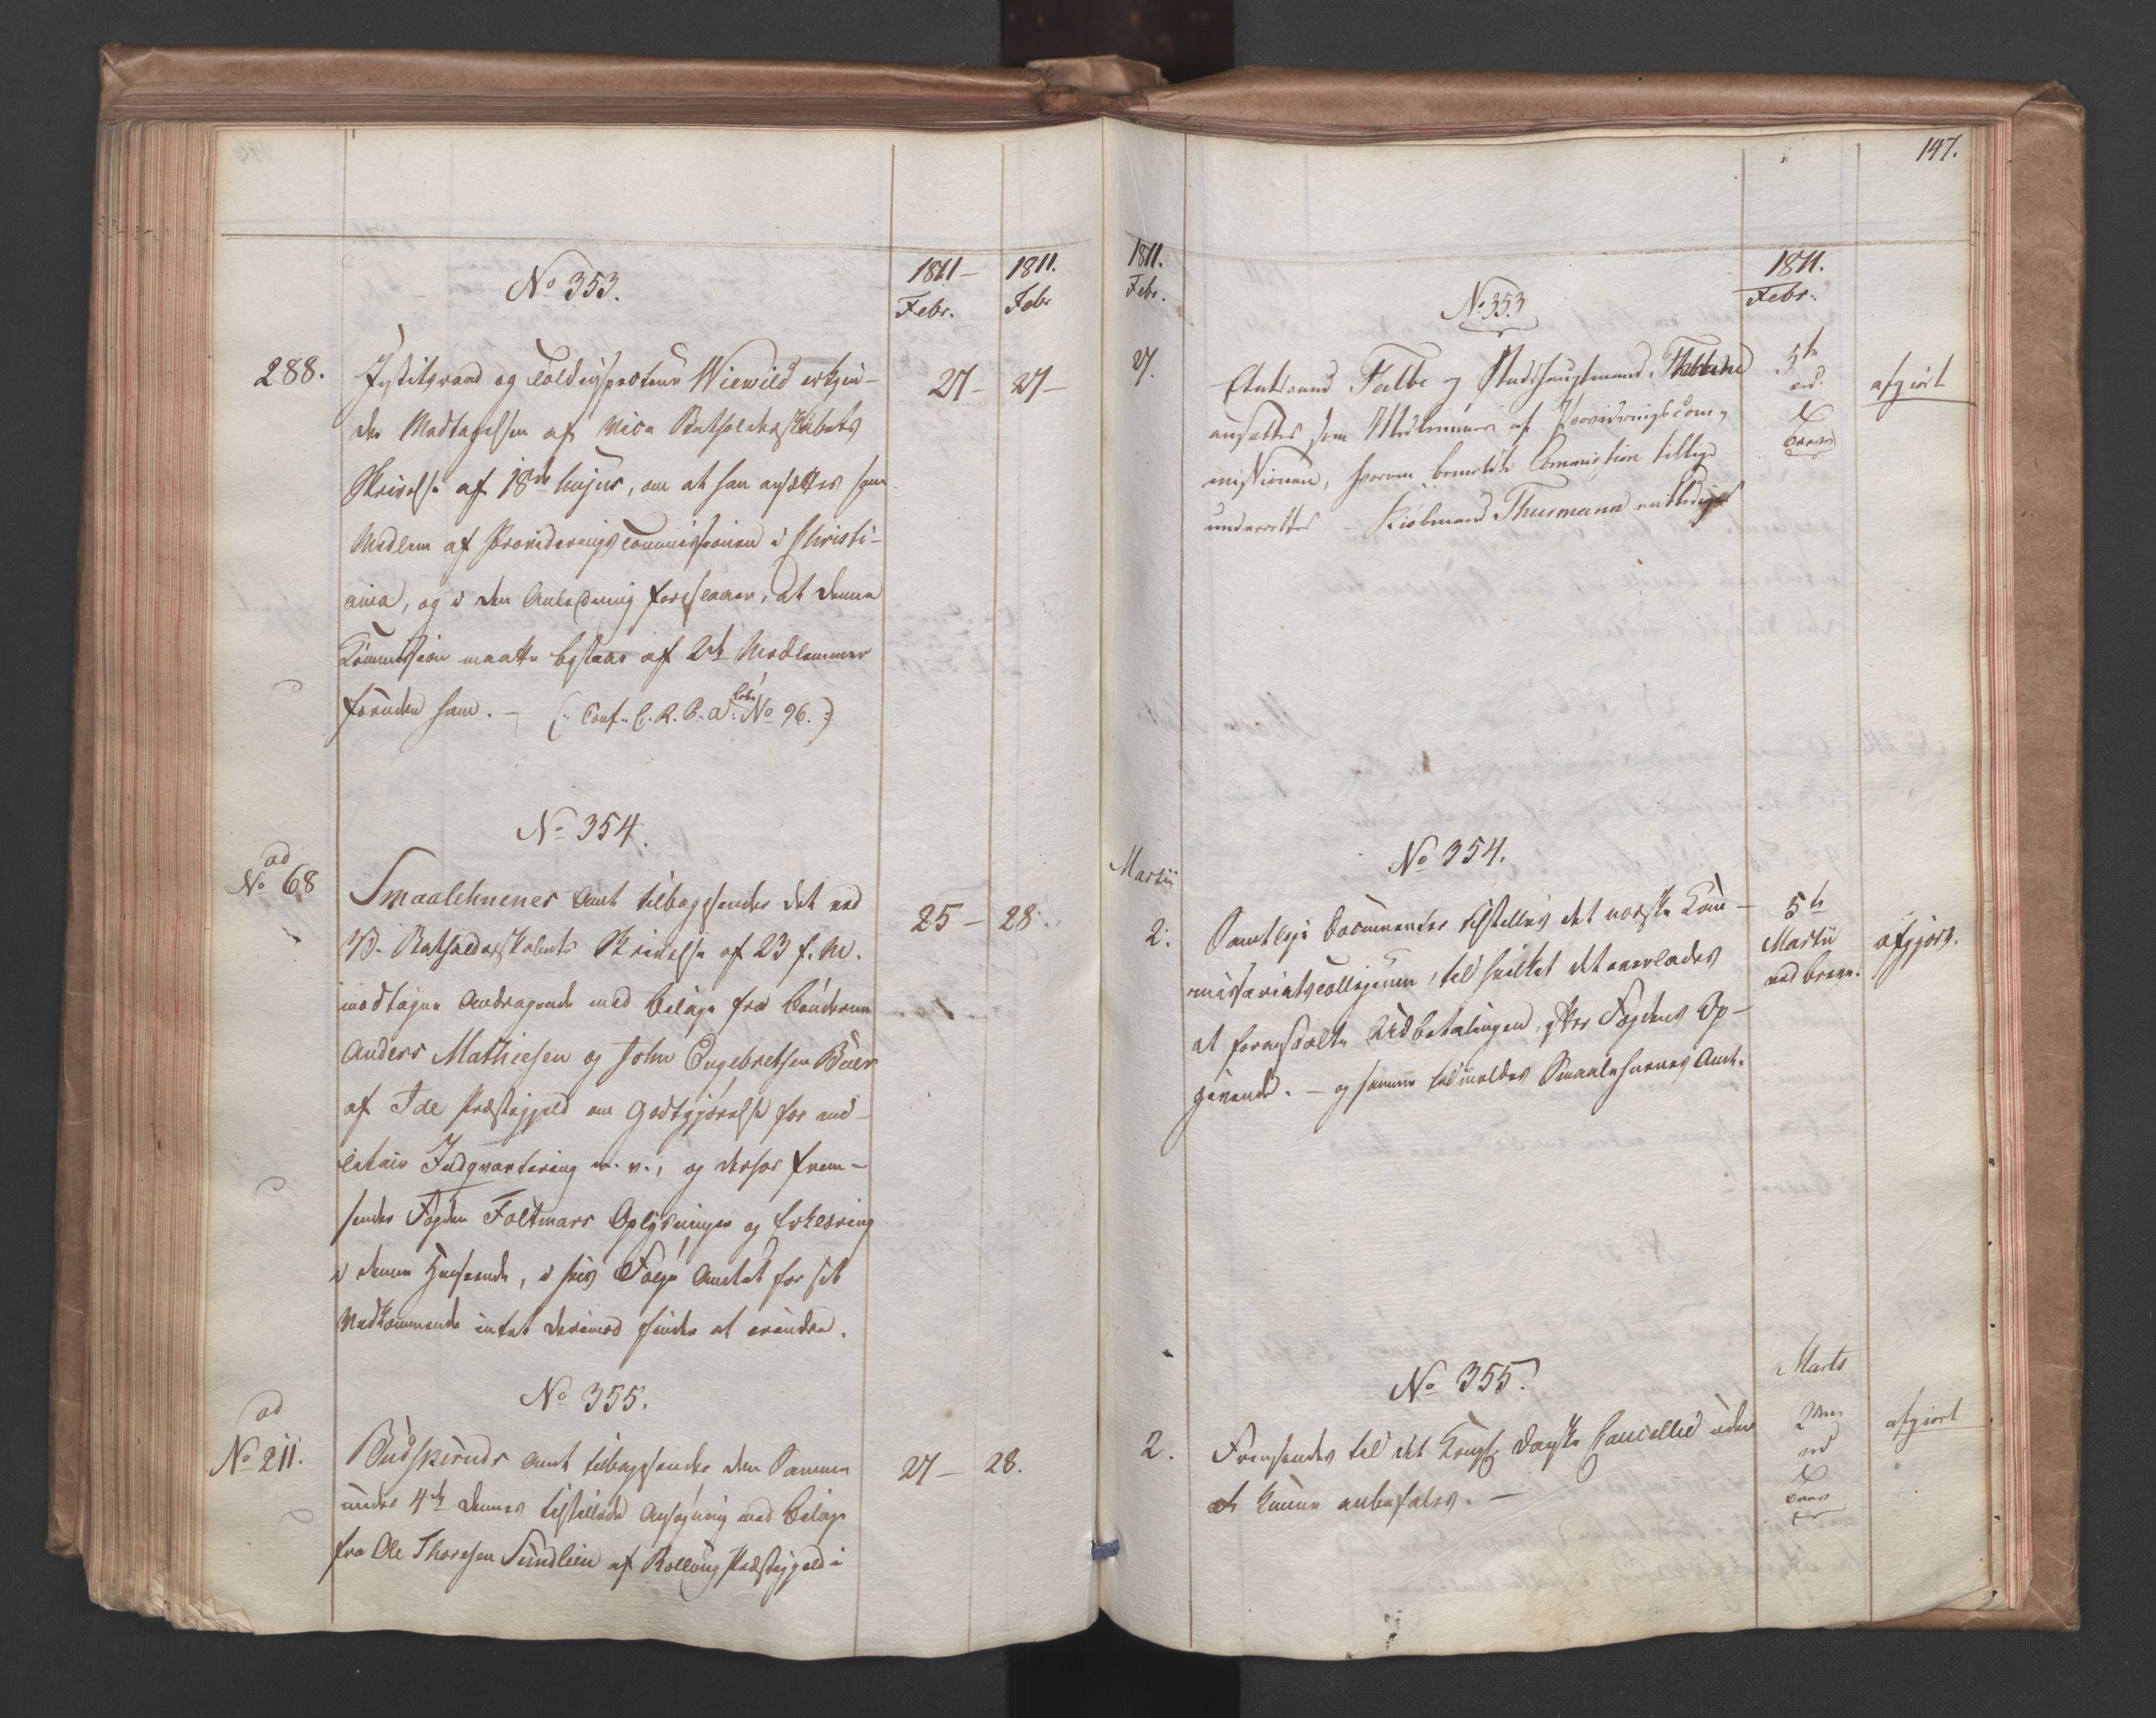 No 353.
1811 –
Febr.
1811.
Febr
288.
Justitsraad og Toldinspecteur Wiewild erkjen-
der Modtagelsen af Vice Statholderskabets
Skrivelse af 18de hujus, om at han ansættes som
Medlem af Provideringscommissionen i Christi-
ania, og i den Anledning foreslaaer, at denne
Commission maatte bestaae af 2de Medlemmer
foruden ham. – (: Conf. C. R. P. a: No 96. :)
27 –
27 –
No 354.
ad
No 68
Smaalehnenes Amt tilbagesender det ved
V. Statholderskabets Skrivelse af 23 f. M.
modtagne Andragende med Bilage fra Bønderne
Anders Mathiesen og John Engebretsen Buer
af Ide Præstegjeld om Godtgjørelse for mi-
litair Indqvartering m. v., og derhos frem-
sender Fogden Foltmars Oplysninger og Erklæring
i denne Henseende, i hvis Følge Amtet for sit
Vedkommende intet derimod finder at erindre.
25 –
28.
No 355.
ad
No 211.
Budskeruds Amt tilbagesender den Samme
under 4de dennes tilstillede Ansøgning med Bilage
fra Ole Thoresen Sundlein af Rolloug Præstegjeld i
27 –
28.
147.
1811.
Febr.
No 353
1811.
Febr.
27.
Etatsraad Falbe og Stadshauptmand
ansættes som Medlemmer af Provideringscom-
missionen, hvorom bemeldte Commission tillige
underrettes – Kiøbmand Thurmann entlediges
5te
ved
Breve
afgiort
No 354.
Martii
2.
Samtlige Documenter tilstilles det norske Com-
missariatscollegium, til hvilket det overlades
at foranstalte Udbetalingen, efter Fogdens Op-
givende. – og samme tilmeldes Smaalehnenes Amt.
5te
Martii
ved breve.
afgjort.
No 355.
2.
Fremsendes til det Kongl. Danske Cancellie uden
at kunne anbefales. –
Marts
2den
ved
Brev
afgiort